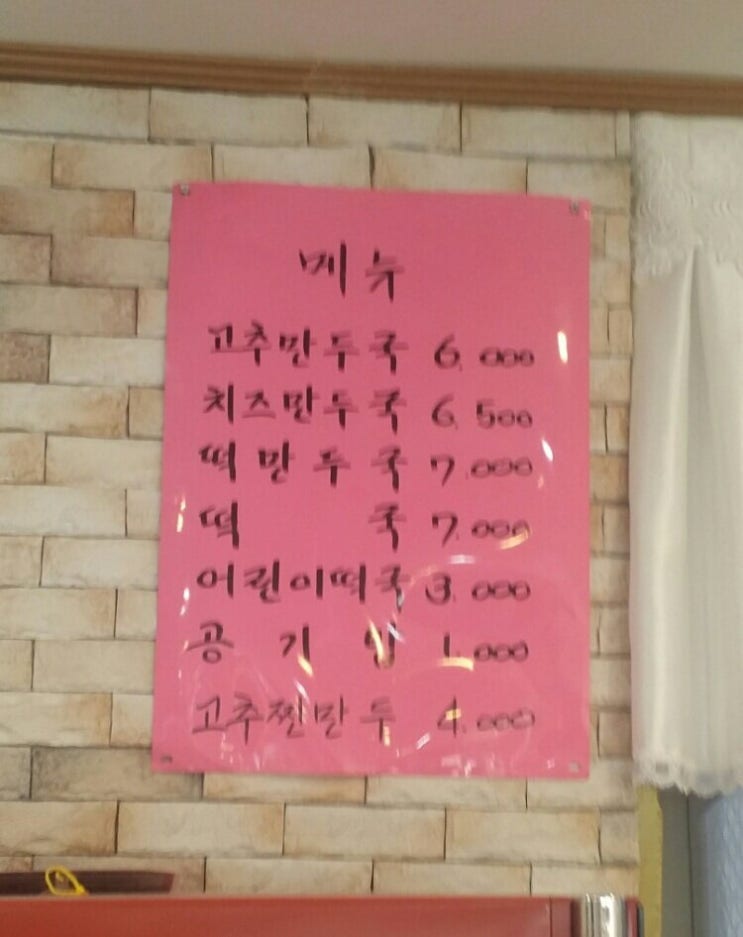 메뉴
고추만두국 6.000
치즈만두국 6.500
떡만두국 7.000
떡 국 7.000
어린이떡국 3.000
공 기 밥 1.000
고추찐만두 4.000